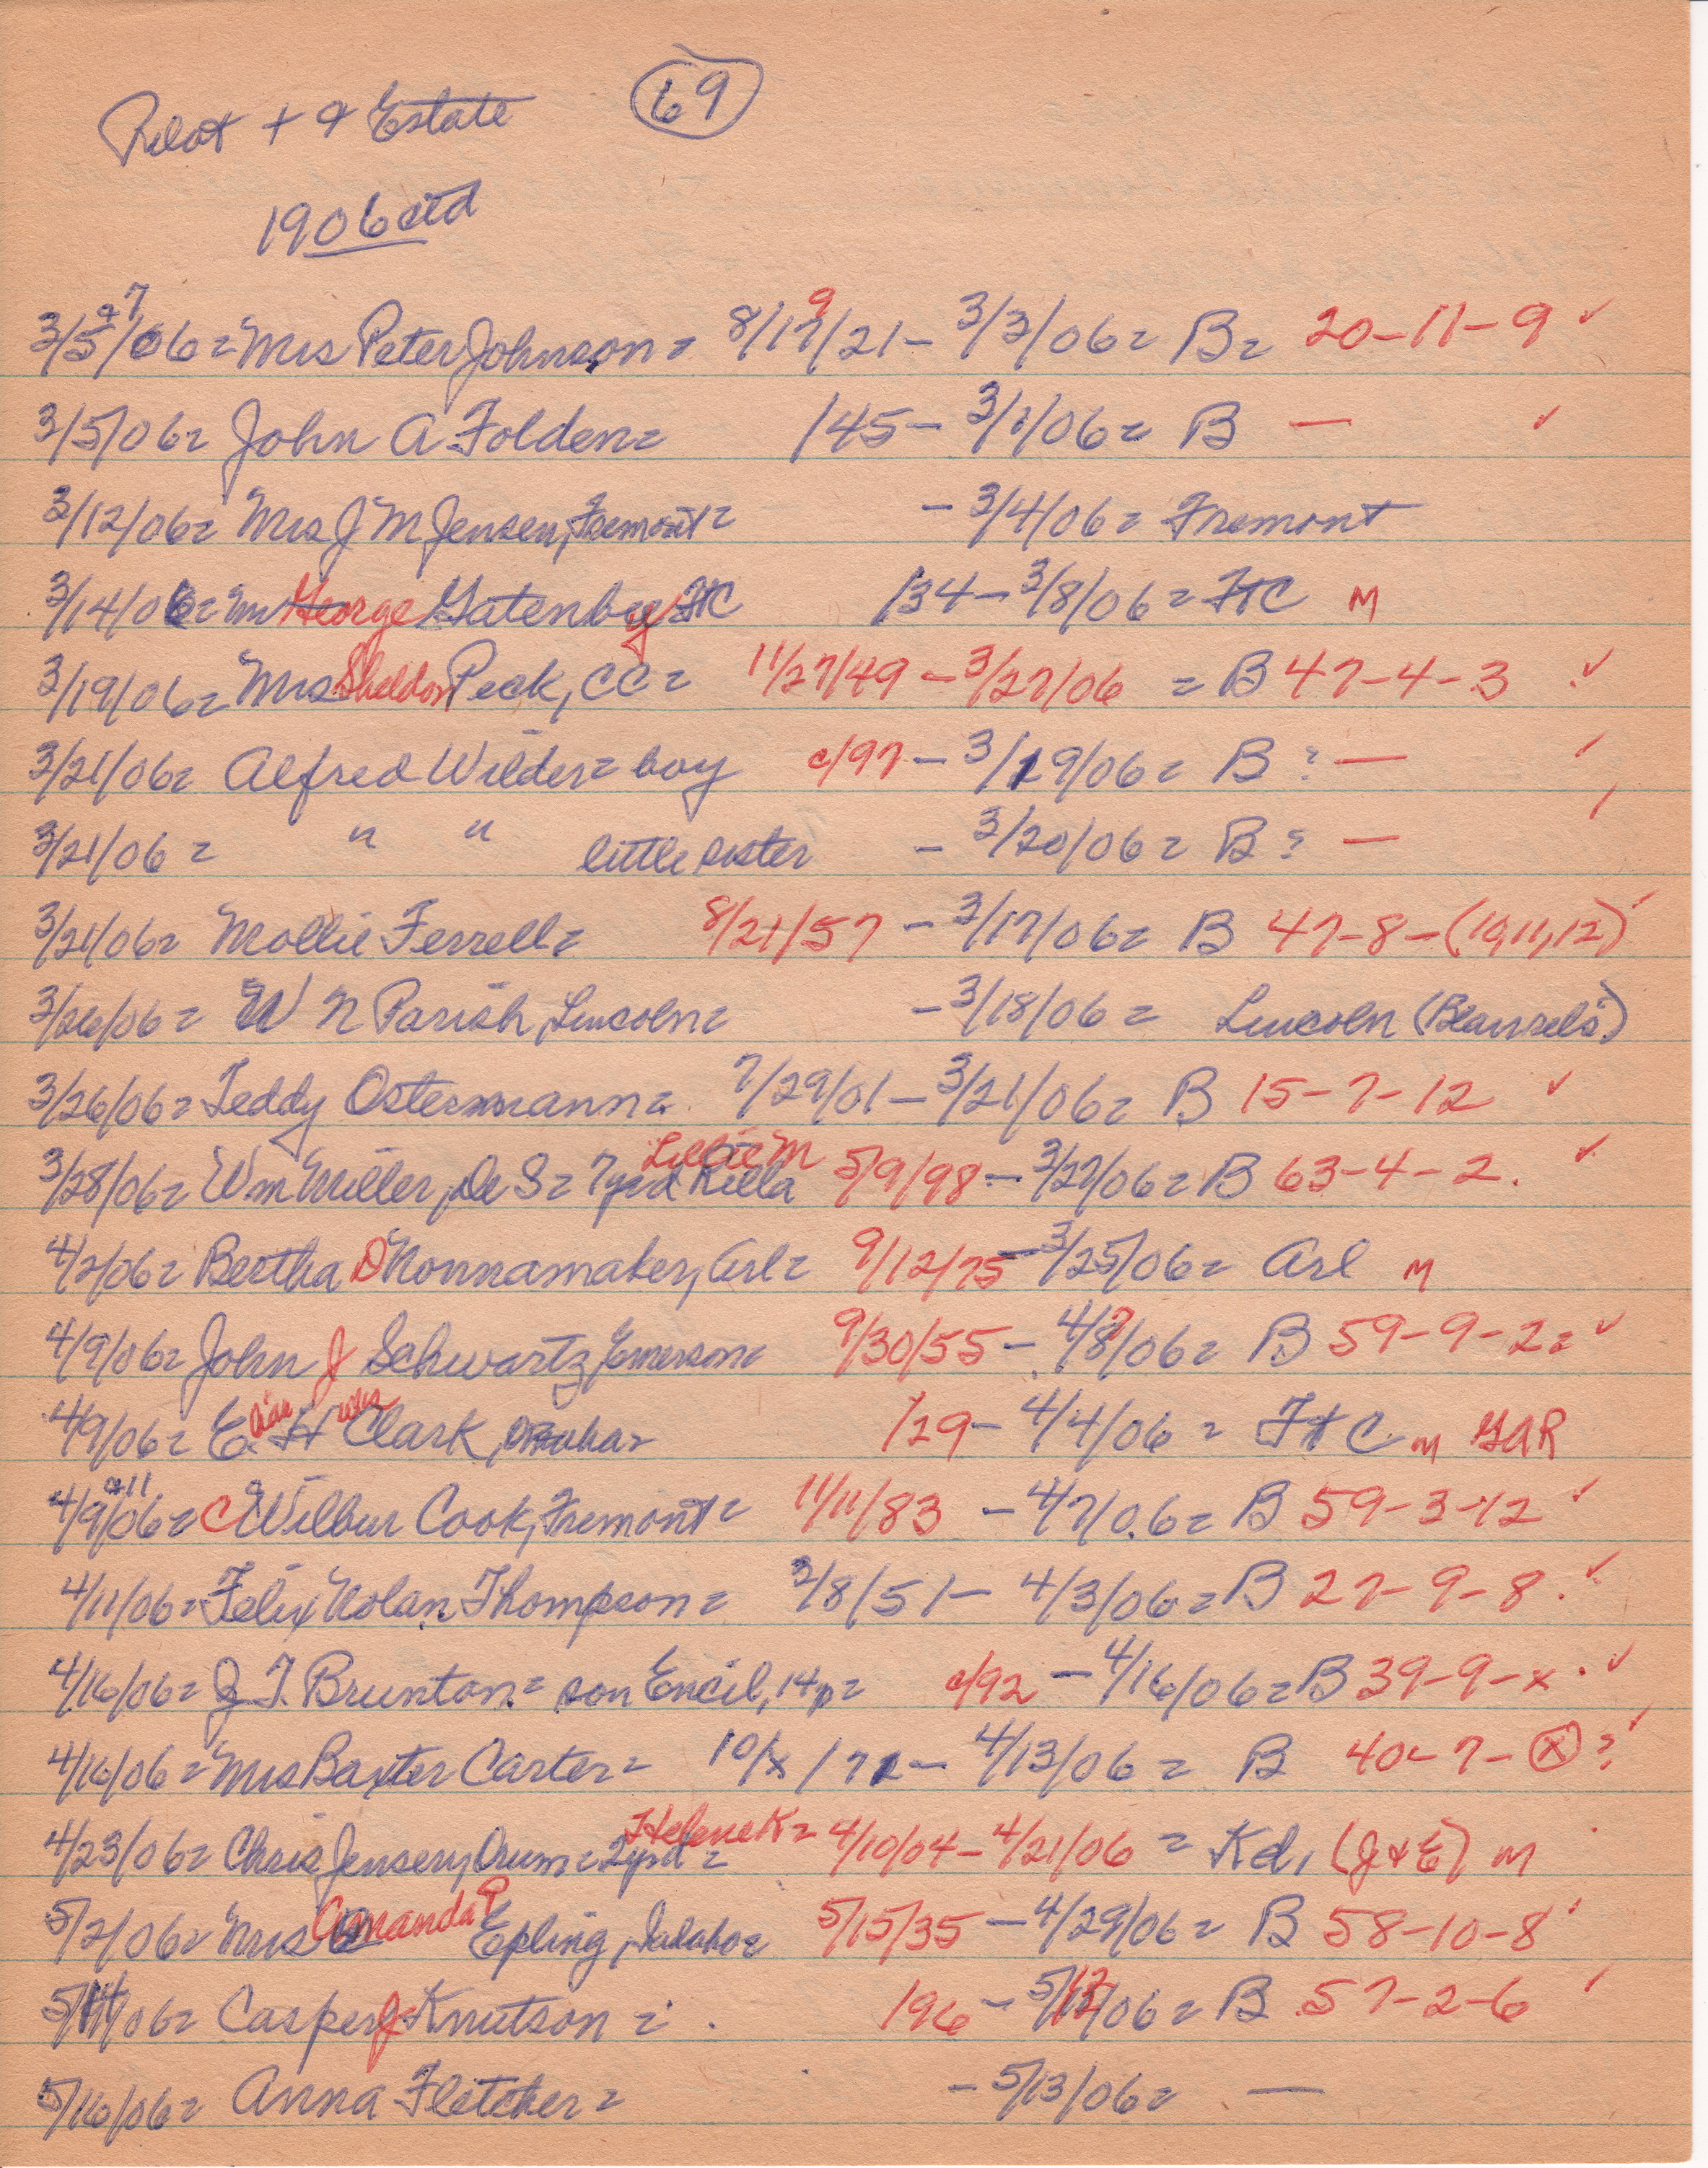 69
Pilot + & Estate
1906 ctd
3/5 & 7/06 = Mrs Peter Johnson = 8/19/21 – 3/3/06 = B = 20-11-9 ✓
3/5/06 = John A Folden = /45 – 3/1/06 = B — ✓
3/12/06 = Mrs J M Jensen, Fremont = – 3/4/06 = Fremont
3/14/06 = George Gatenby FtC /34 – 3/8/06 = FtC M
3/19/06 = Mrs Sheldon Peck, CC = 11/27/49 – 3/27/06 = B 47-4-3 ✓
3/21/06 = Alfred Wilder = boy c/97 – 3/19/06 = B ? — ✓
3/21/06 = " " little sister – 3/20/06 = B ? — ✓
3/21/06 = Mollie Ferrell = 8/21/57 – 3/17/06 = B 47-8-(10,11,12) ✓
3/26/06 = W N Parish, Lincoln = – 3/18/06 = Lincoln
3/26/06 = Teddy Ostermann = 7/29/01 – 3/21/06 = B 15-7-12 ✓
3/28/06 = Wm Miller, De S = 7yrd Rella Lillie M 5/9/98 – 3/27/06 = B 63-4-2. ✓
4/2/06 = Bertha D Nonnamaker, Arl = 9/12/75 – 3/25/06 = Arl M
4/9/06 = John J Schwartz, Emerson = 9/30/55 – 4/8/06 = B 59-9-2 = ✓
4/9/06 = E. H Clark, Omaha = /29 – 4/4/06 = FtC M GAR
4/9 & 11/06 = C Wilbur Cook, Fremont = 11/11/83 – 4/7/06 = B 59-3-12 ✓
4/11/06 = Felix Nolan Thompson = 2/8/51 – 4/3/06 = B 27-9-8. ✓
4/16/06 = J T. Brunton = son Encil, 14p = c/92 – 4/16/06 = B 39-9-x. ✓
4/16/06 = Mrs Baxter Carter = 10/x/71 – 4/13/06 = B 40-7-(x) ? ✓
4/23/06 = Chris Jensen, Orum = 2yrd = Helene K = 4/10/04 – 4/21/06 = Kd, (J & E) M
5/2/06 = Mrs Amanda P Epling, Idaho = 5/15/35 – 4/29/06 = B 58-10-8 ✓
5/14/06 = Casper J Knutson = /96 – 5/12/06 = B 57-2-6 ✓
5/16/06 = Anna Fletcher = – 5/13/06 = —